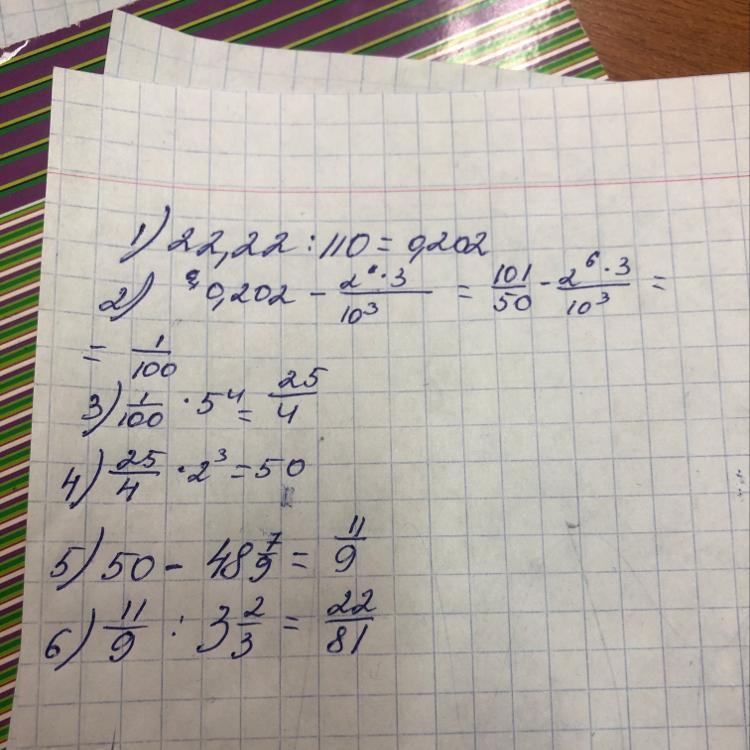 1) 22,22 : 110 = 0,202
2) 0,202 - 2^6·3/10^3 = 101/50 - 2^6·3/10^3 =
= 1/100
3) 1/100 · 5^4 = 25/4
4) 25/4 · 2^3 = 50
5) 50 - 48 7/9 = 11/9
6) 11/9 : 3 2/3 = 22/81